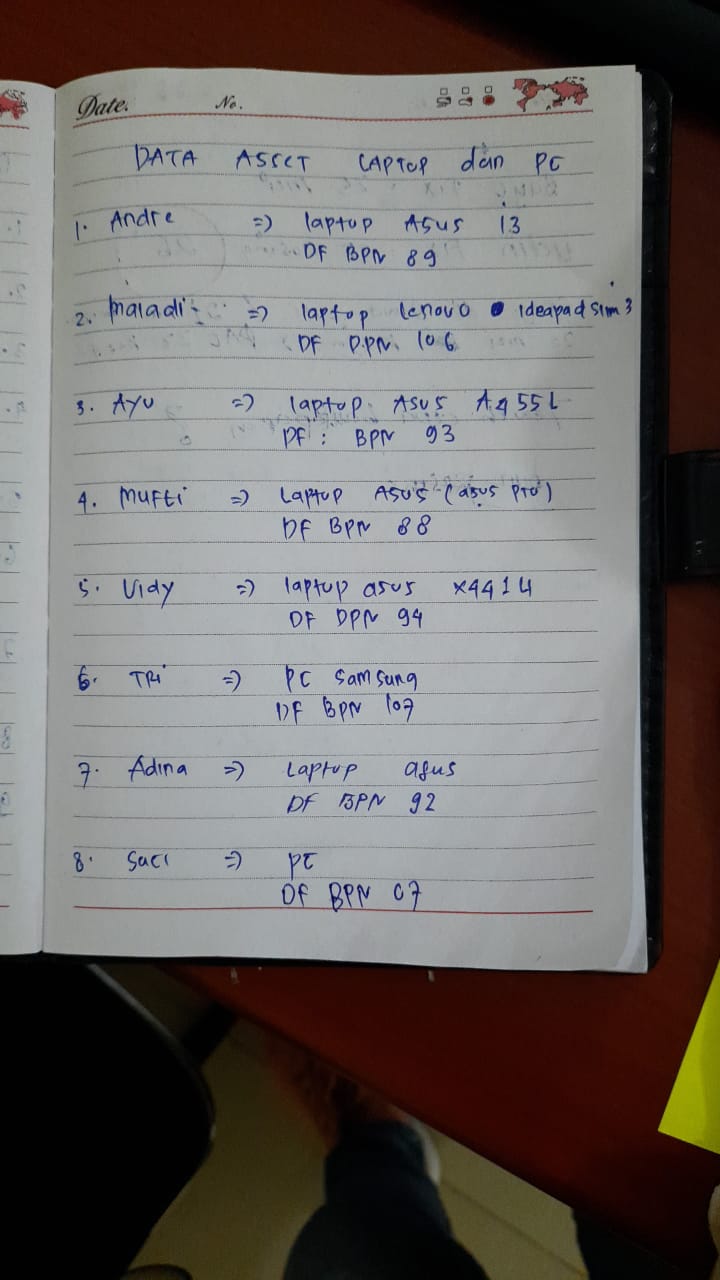 Date. No.
DATA ASSET LAPTOP dan PC
1. Andre => laptop Asus i3
DF BPN 89
2. Maladi => laptop Lenovo ideapad slim 3
DF BPN 106
3. Ayu => laptop Asus A455L
DF: BPN 93
4. Mufti => Laptop Asus (asus pro)
DF BPN 88
5. Vidy => laptop asus X441U
DF BPN 94
6. TRi => PC Samsung
DF BPN 107
7. Adina => Laptop asus
DF BPN 92
8. Suci => PC
DF BPN 07